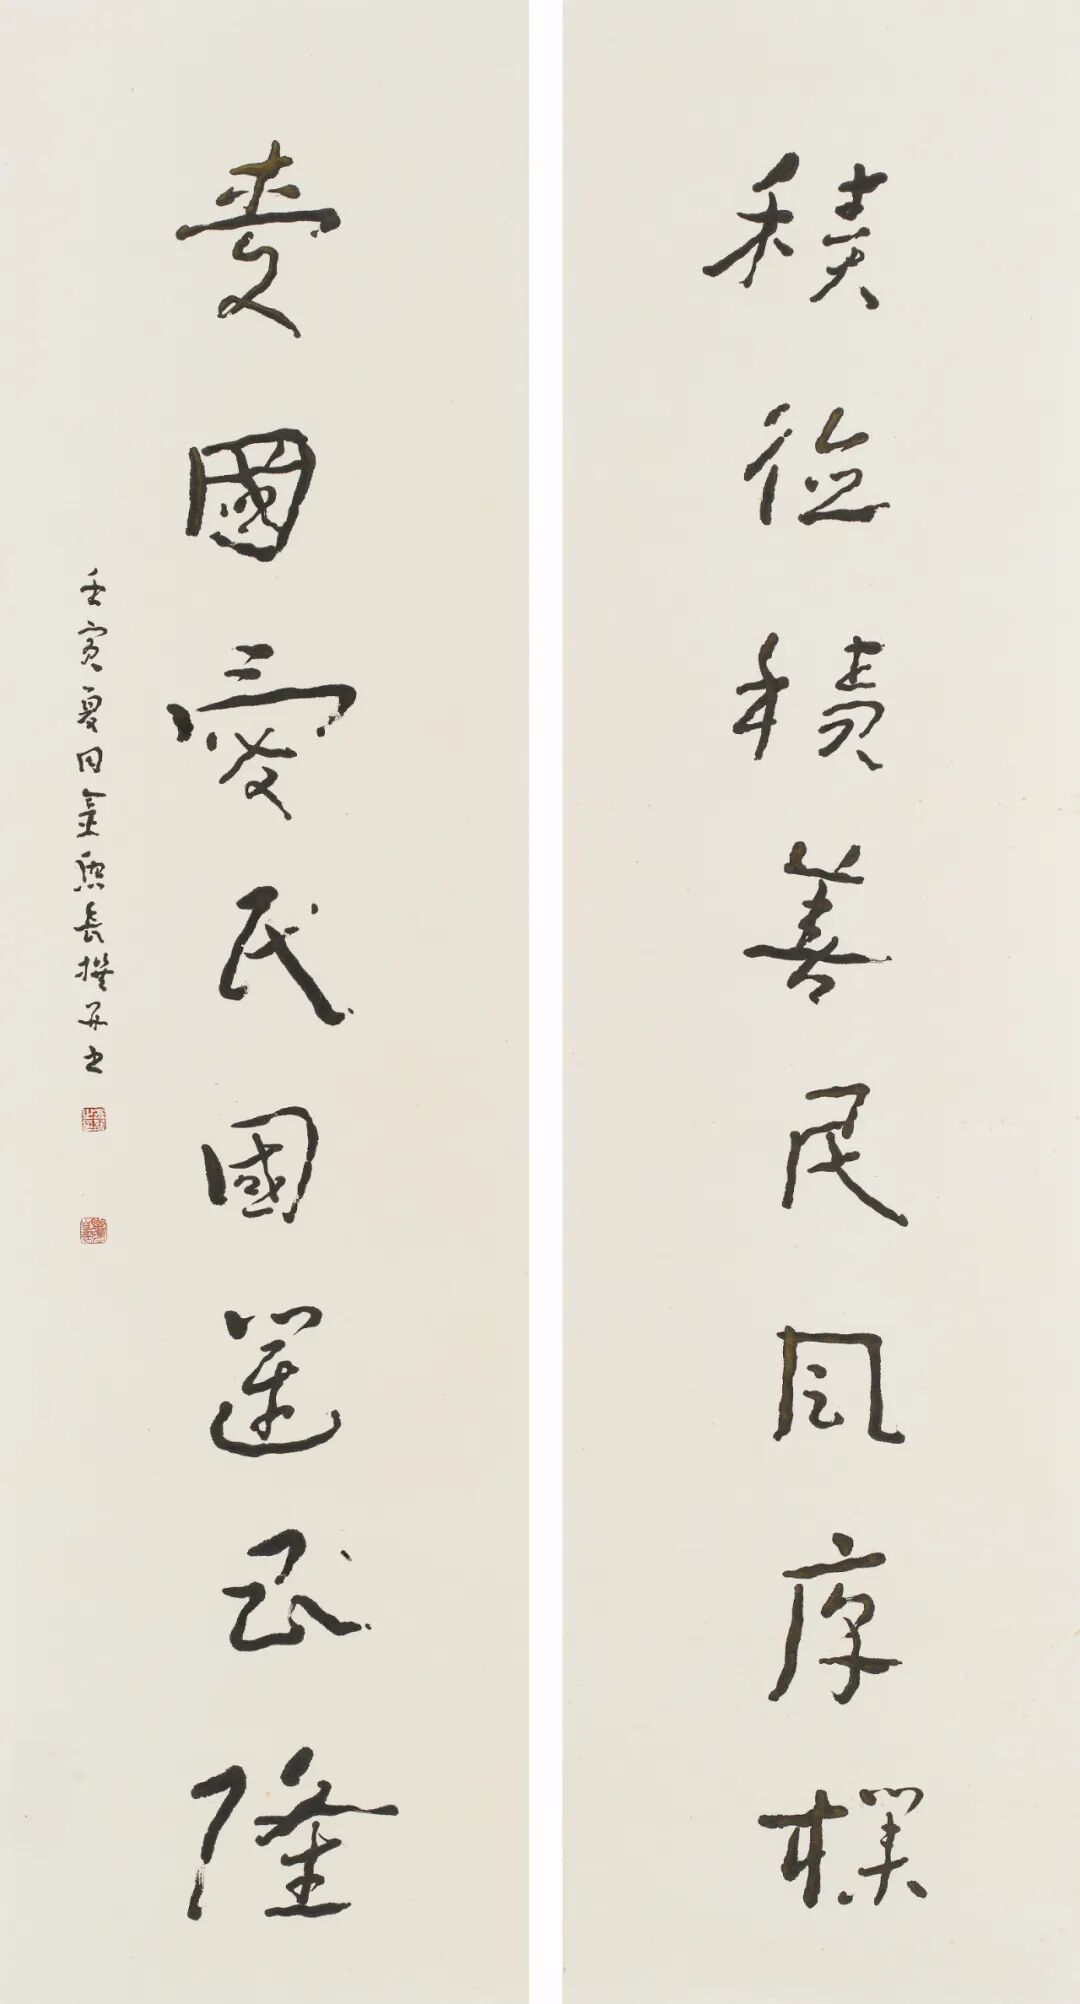 積德積善民風厚樸
愛國愛民國運民隆
壬寅夏日金熙長撰并书